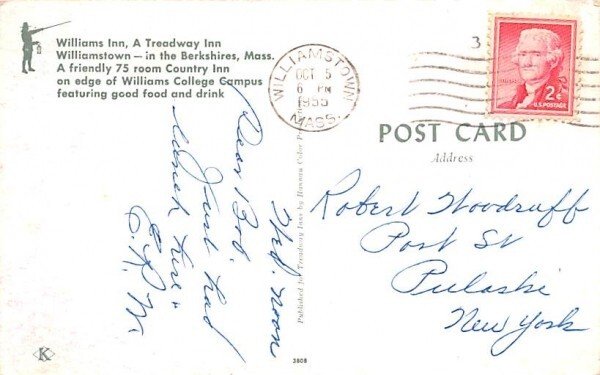 Williams Inn, A Treadway Inn
Williamstown — in the Berkshires, Mass.
A friendly 75 room Country Inn
on edge of Williams College Campus
featuring good food and drink
Wed. Noon
Dear Bob,
Just had
lunch here.
E.R.W.
K
Published for Treadway Inns by Hannau Color
3808
WILLIAMSTOWN
OCT 5
6 PM
1955
MASS.
3
2¢
U.S. POSTAGE
POST CARD
Address
Robert Woodruff
Post St
Pulaski
New York